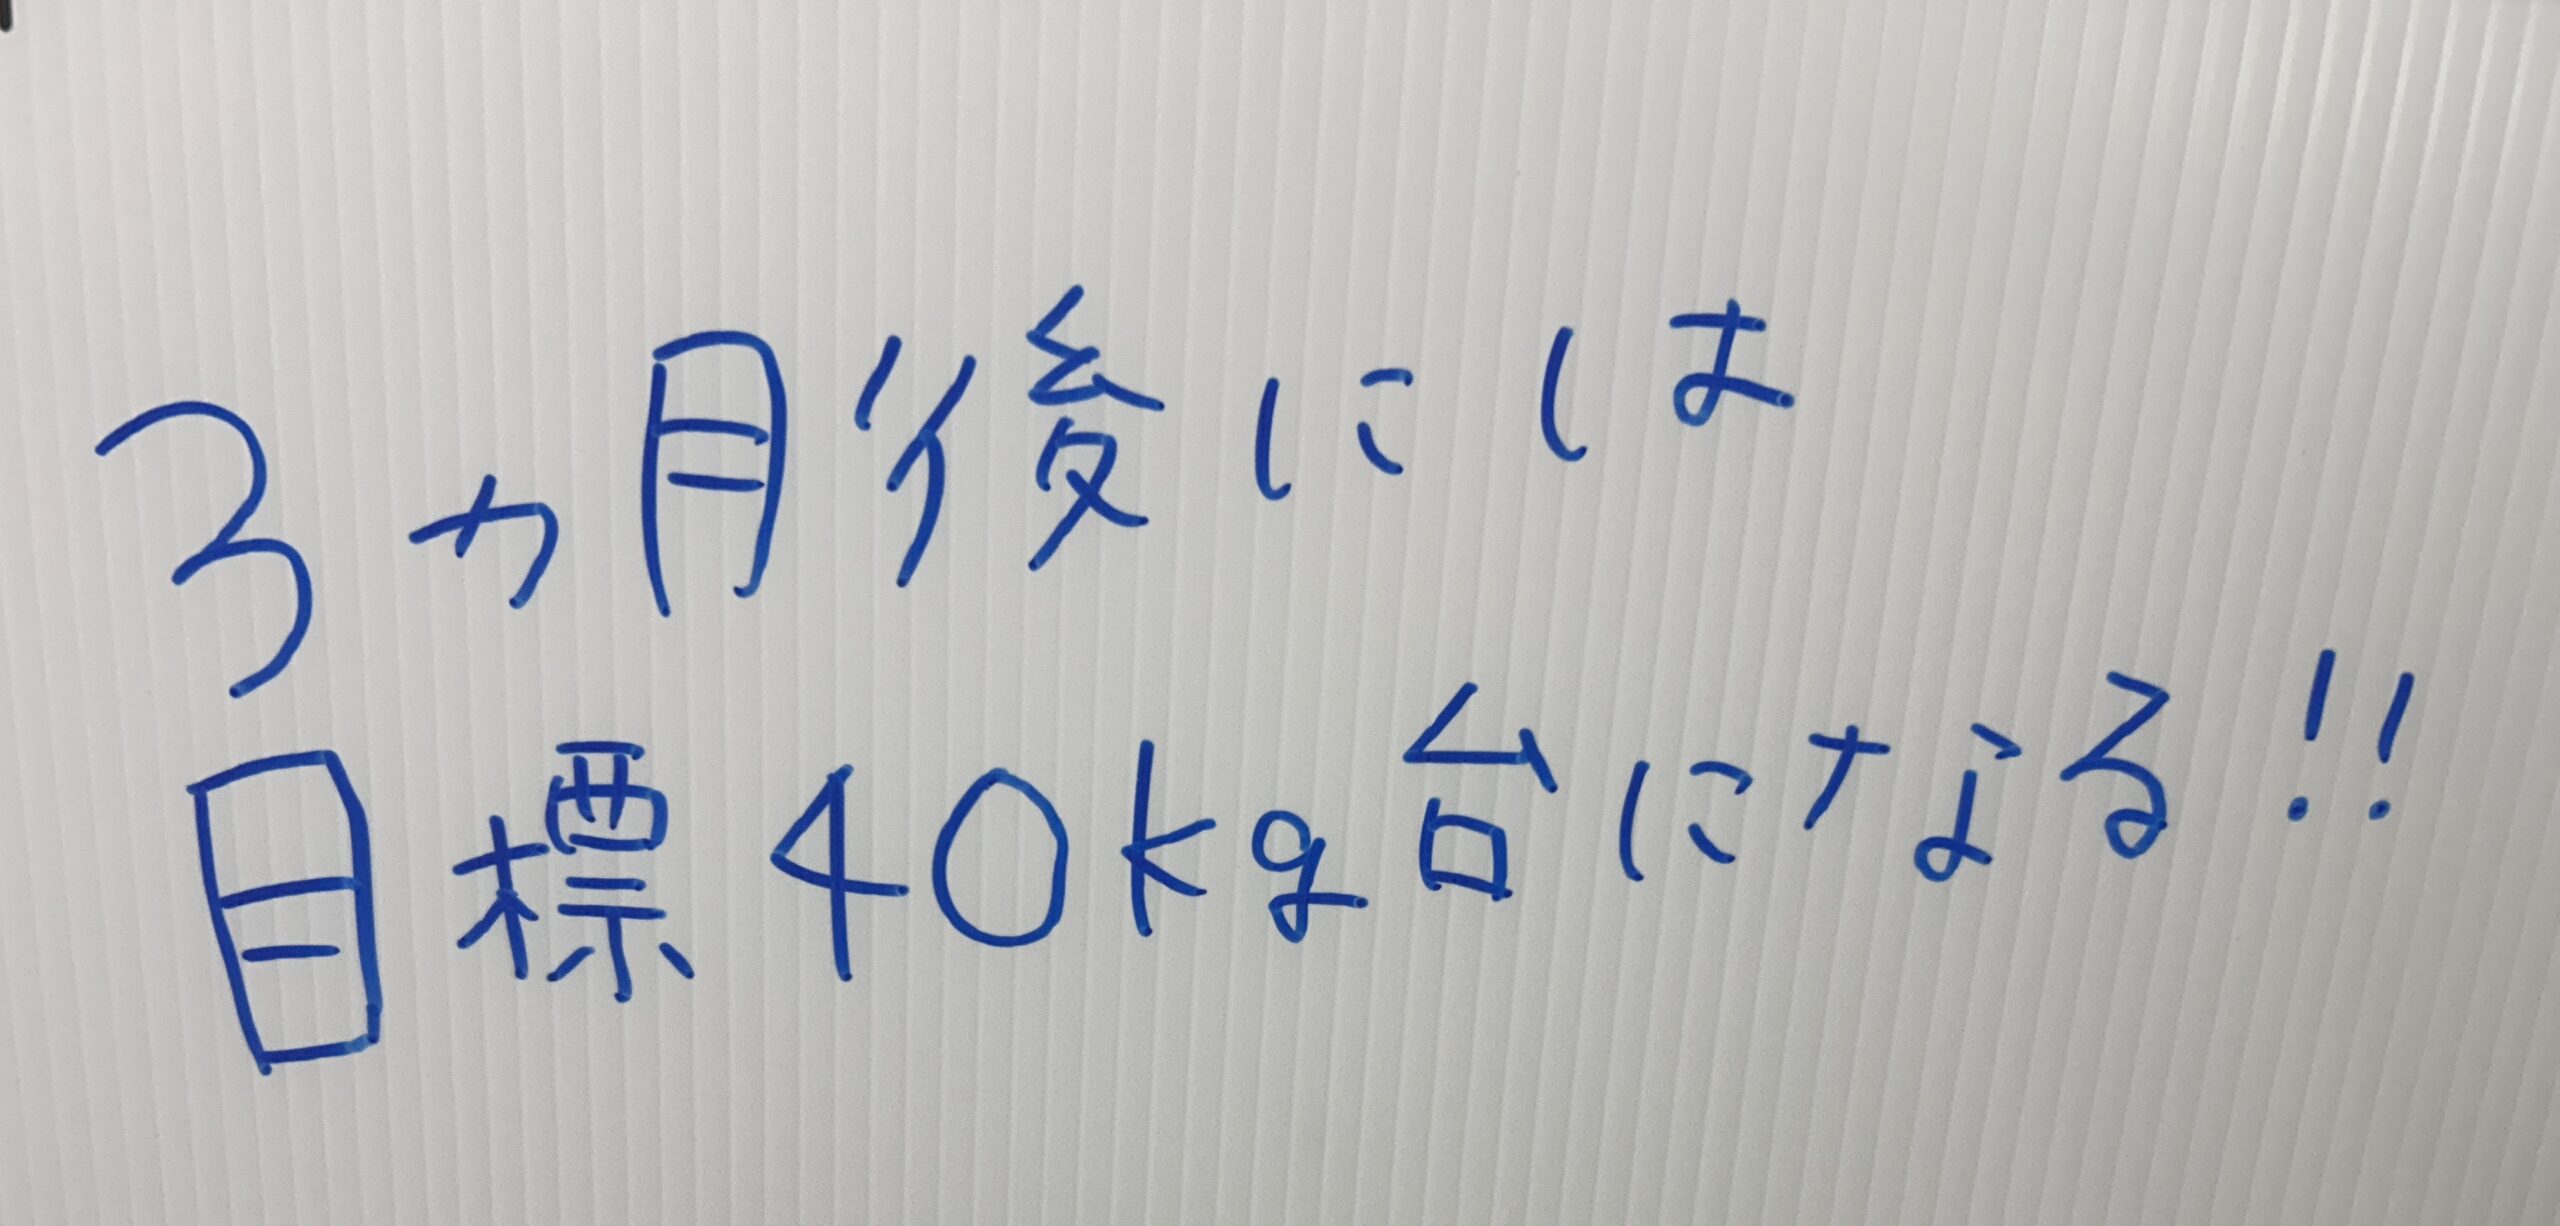 3ヵ月後には
目標40kg台になる!!